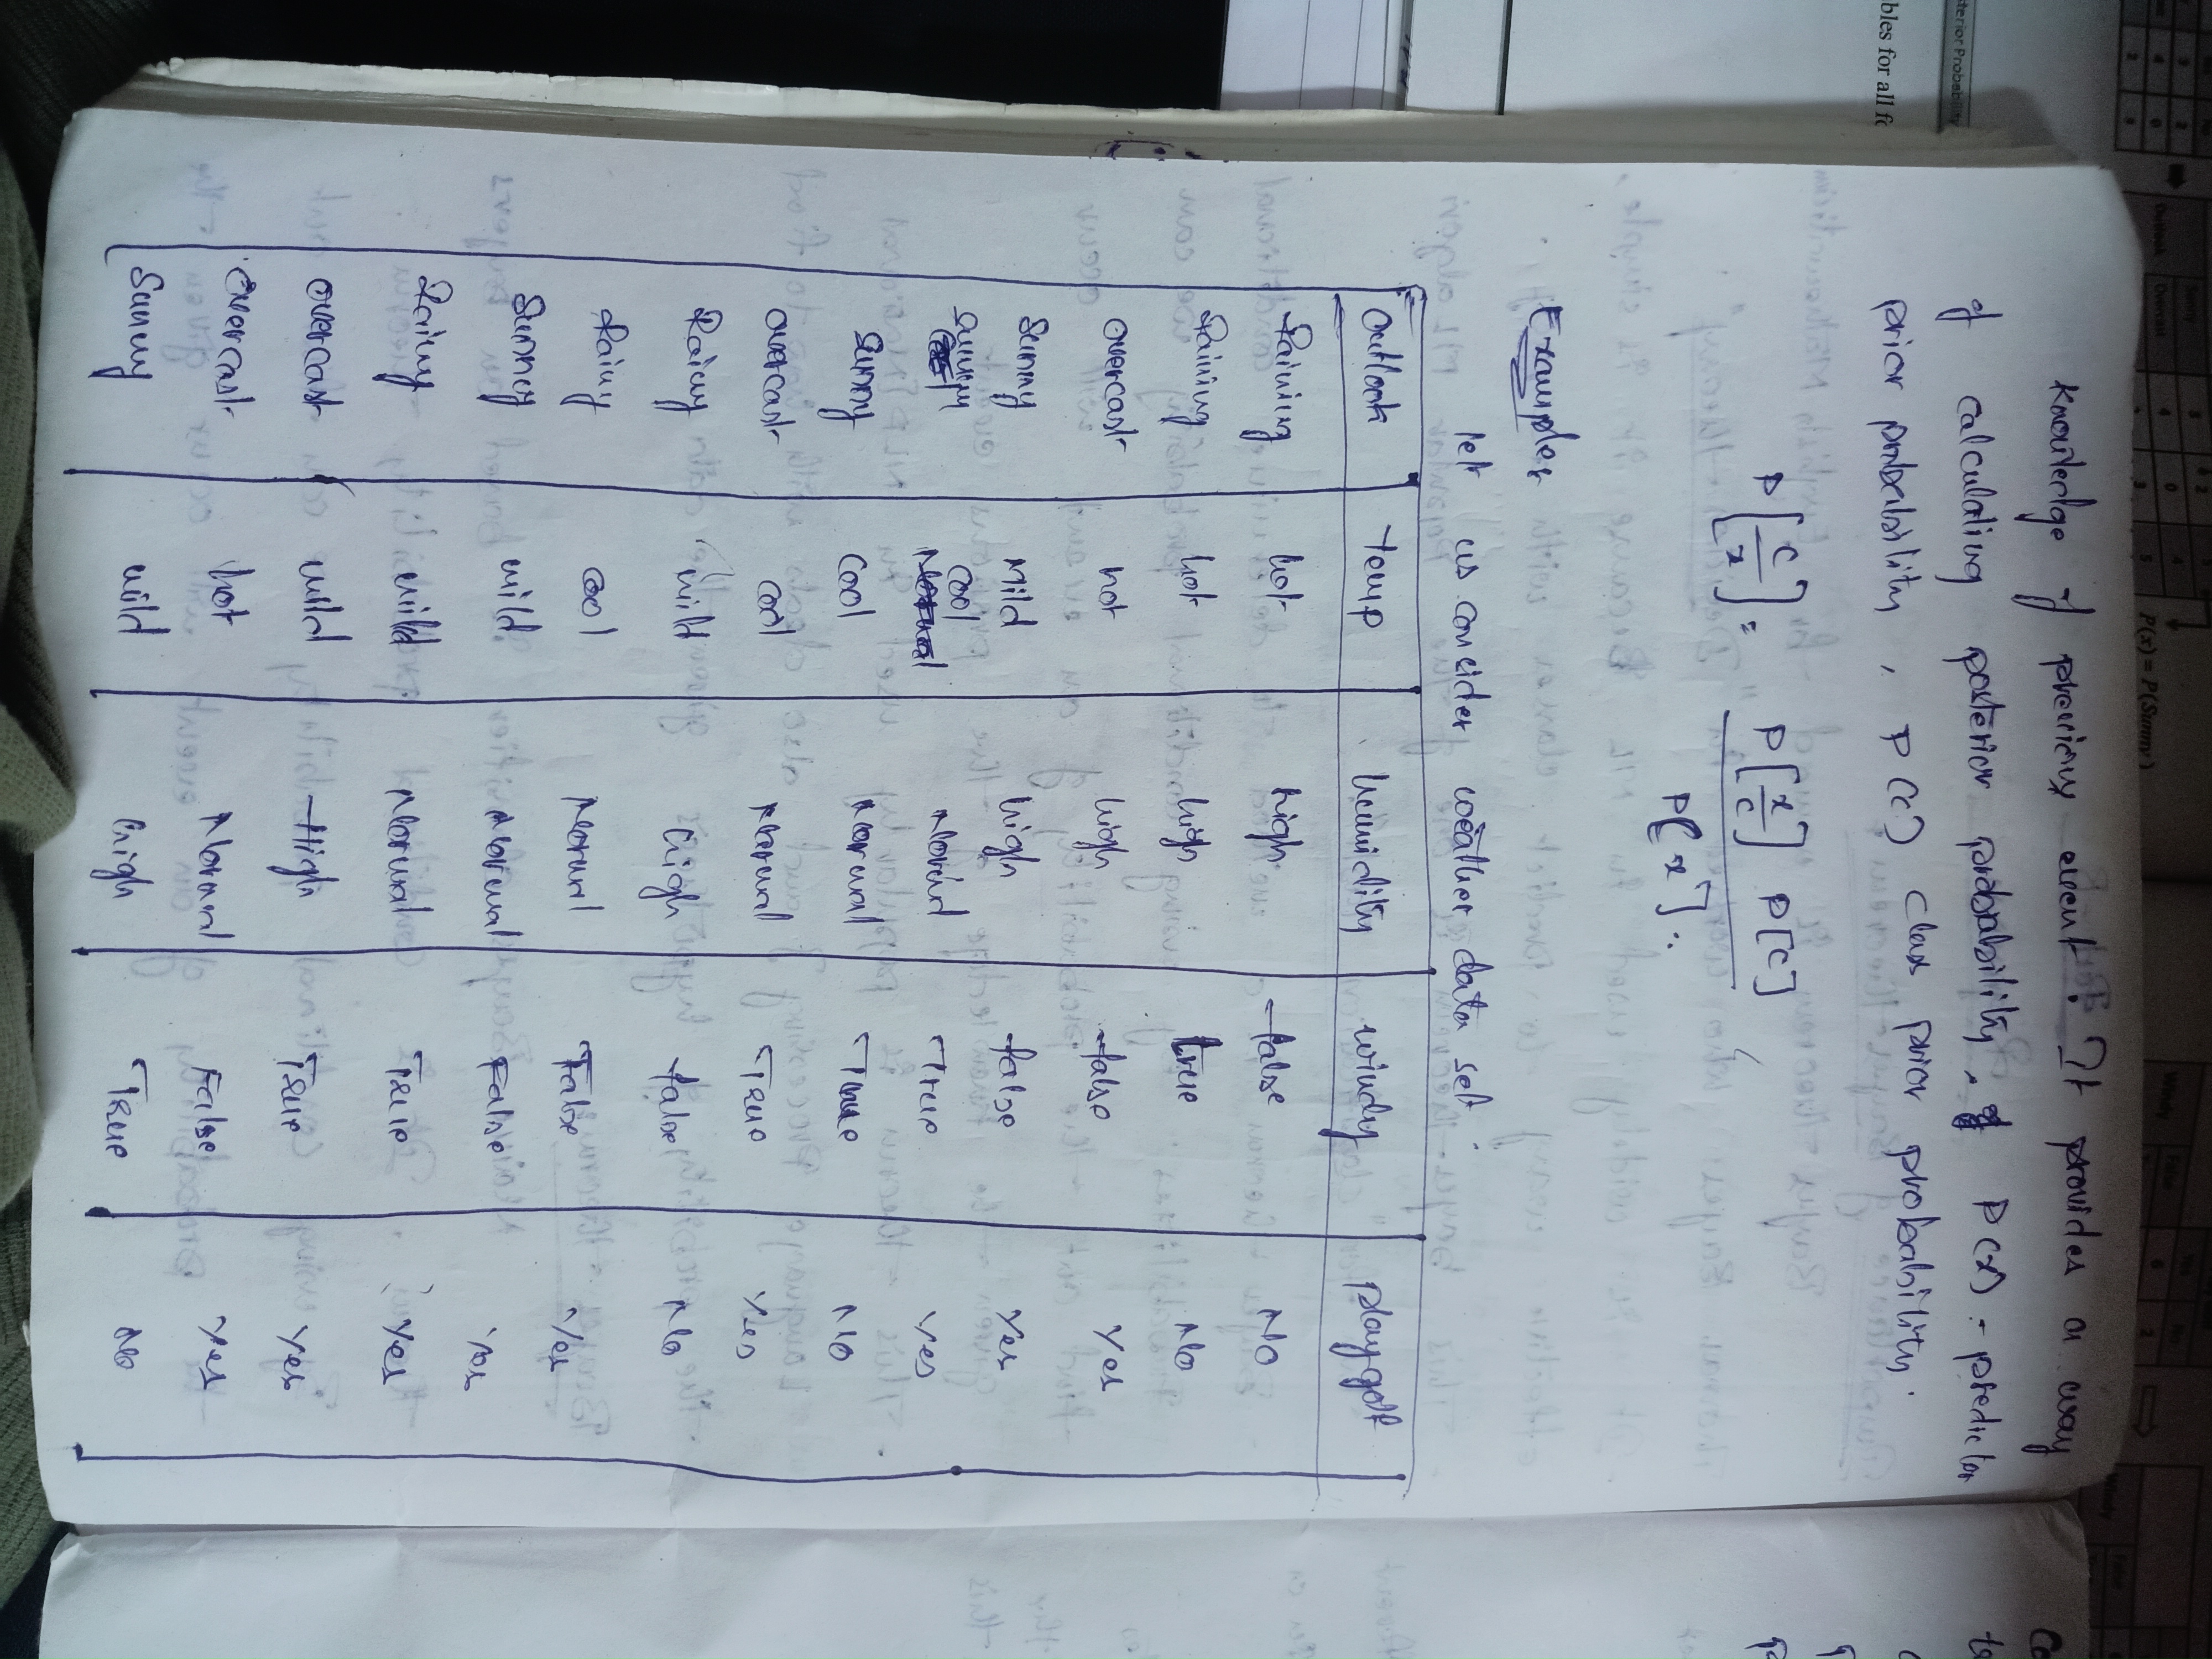 knowledge of previous event. It provides a way
of calculating posterior probability, P(x) - predictor
prior probability, P(c) class prior probability.
P[c/x] = P[x/c] P[c]
P[x] ..
Examples
let us consider weather data set
outlook temp humidity windy play golf
Raining hot high false NO
Raining hot high true No
overcast hot high false Yes
Sunny Mild high false Yes
Sunny cool Normal True Yes
Sunny Cool Normal True NO
overcast cool Normal True Yes
Rainy mild high false No
Rainy cool Normal False Yes
Sunney mild Normal False Yes
Rainy mild Normal True Yes
overcast mild High True Yes
overcast hot Normal False Yes
Sunny mild high True No
terior Probability
bles for all fo
P(x) = P(Sunny)